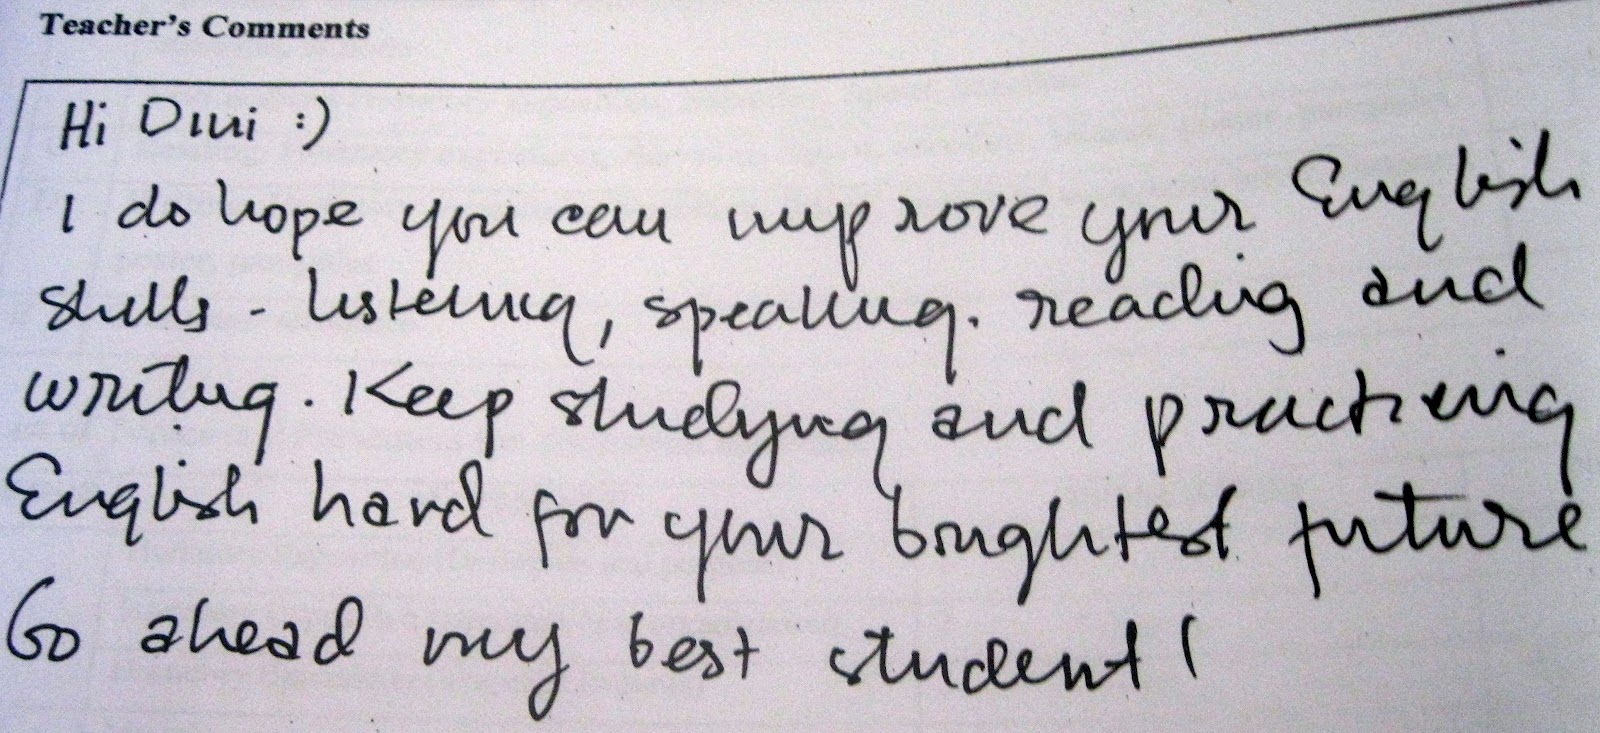 Teacher's Comments
Hi Dini :)
I do hope you can improve your English
skills - listening, speaking. reading and
writing. Keep studying and practicing
English hard for your brightest future
Go ahead my best student!